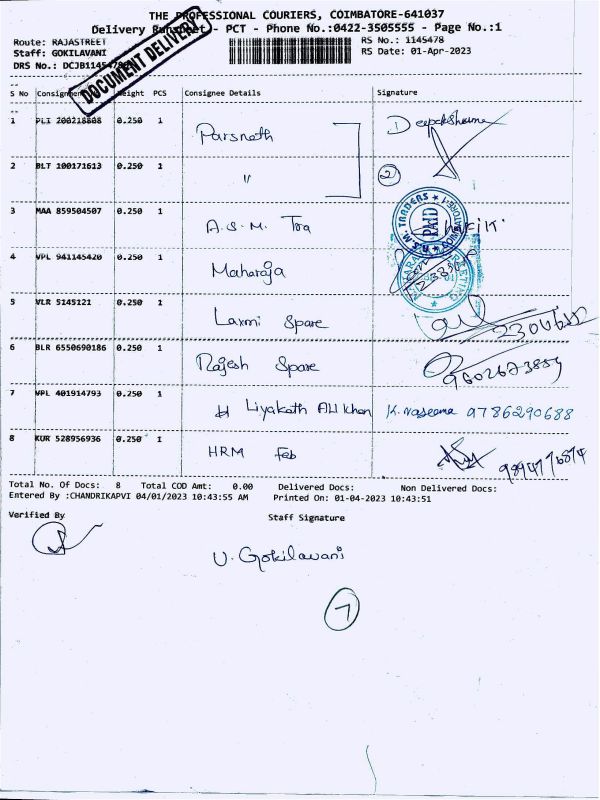 THE PROFESSIONAL COURIERS, COIMBATORE-641037
Delivery Runsheet - PCT - Phone No.:0422-3505555 - Page No.:1
Route: RAJASTREET RS No.: 1145478
Staff: GOKILAVANI RS Date: 01-Apr-2023
DRS No.: DCJB1145478
DOCUMENT DELIVERY
S No Consignment Weight PCS Consignee Details Signature
1 PLI 200218808 0.250 1 Parsnath Deepaksharma
2 BLT 100171613 0.250 1 " 2
3 MAA 859504507 0.250 1 A.S.M. Tra
TRADERS PAID
4 VPL 941145420 0.250 1 Maharaja
5 VLR 5145121 0.250 1 Laxmi Spare
6 BLR 6550690186 0.250 1 Rajesh Spare
7 VPL 401914793 0.250 1 Liyakath Ali Khan K. Naseema 9786290688
8 KUR 528956936 0.250 1 HRM Feb
Total No. Of Docs: 8 Total COD Amt: 0.00 Delivered Docs: Non Delivered Docs:
Entered By :CHANDRIKAPVI 04/01/2023 10:43:55 AM Printed On: 01-04-2023 10:43:51
Verified By Staff Signature
U. Gokilavani
7